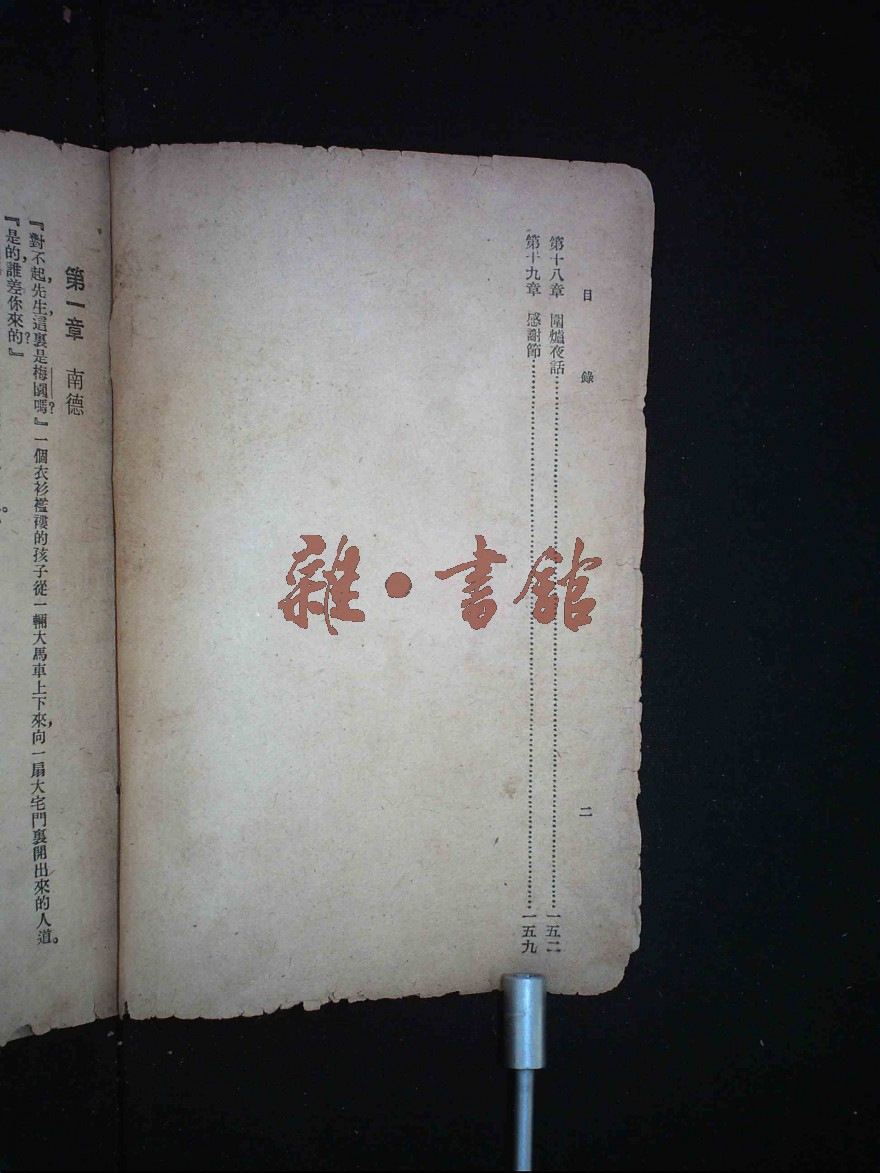 目錄
二
第十八章 圍爐夜話……一五二
第十九章 感謝節……一五九
雜·書館
第一章 南德
『對不起,先生,這裏是梅園嗎?』一個衣衫襤褸的孩子從一輛大馬車上下來,向一扇大宅門裏開出來的人道。
『是的,誰差你來的?』